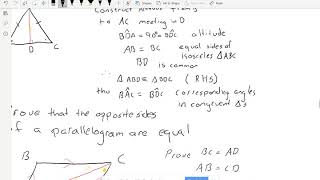 to AC meeting in D
BD̂A = 90° = BD̂C altitude
AB = BC equal sides of
isosceles △ABC
BD is common
∴ △ABD ≡ △BDC (RHS)
thus BÂC = BĈA corresponding angles
in congruent △'s
D C
rove that the opposite sides
of a parallelogram are equal
B C
Prove BC = AD
AB = CD